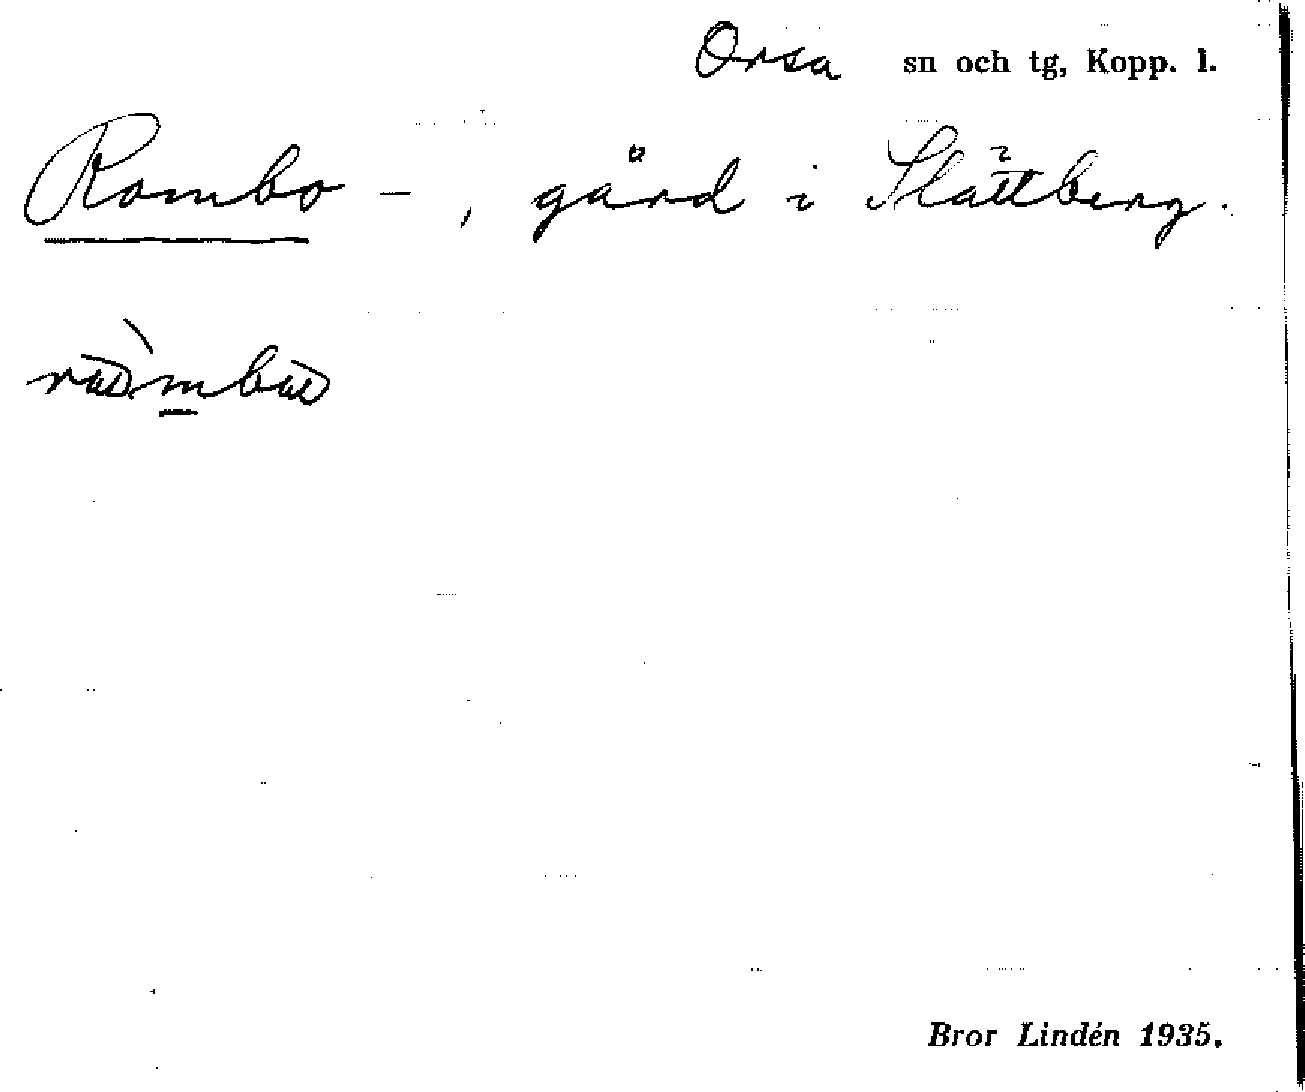 Orsa sn och tg, Kopp. l.
Rombo -, gård i Slättberg.
Bror Lindén 1935.